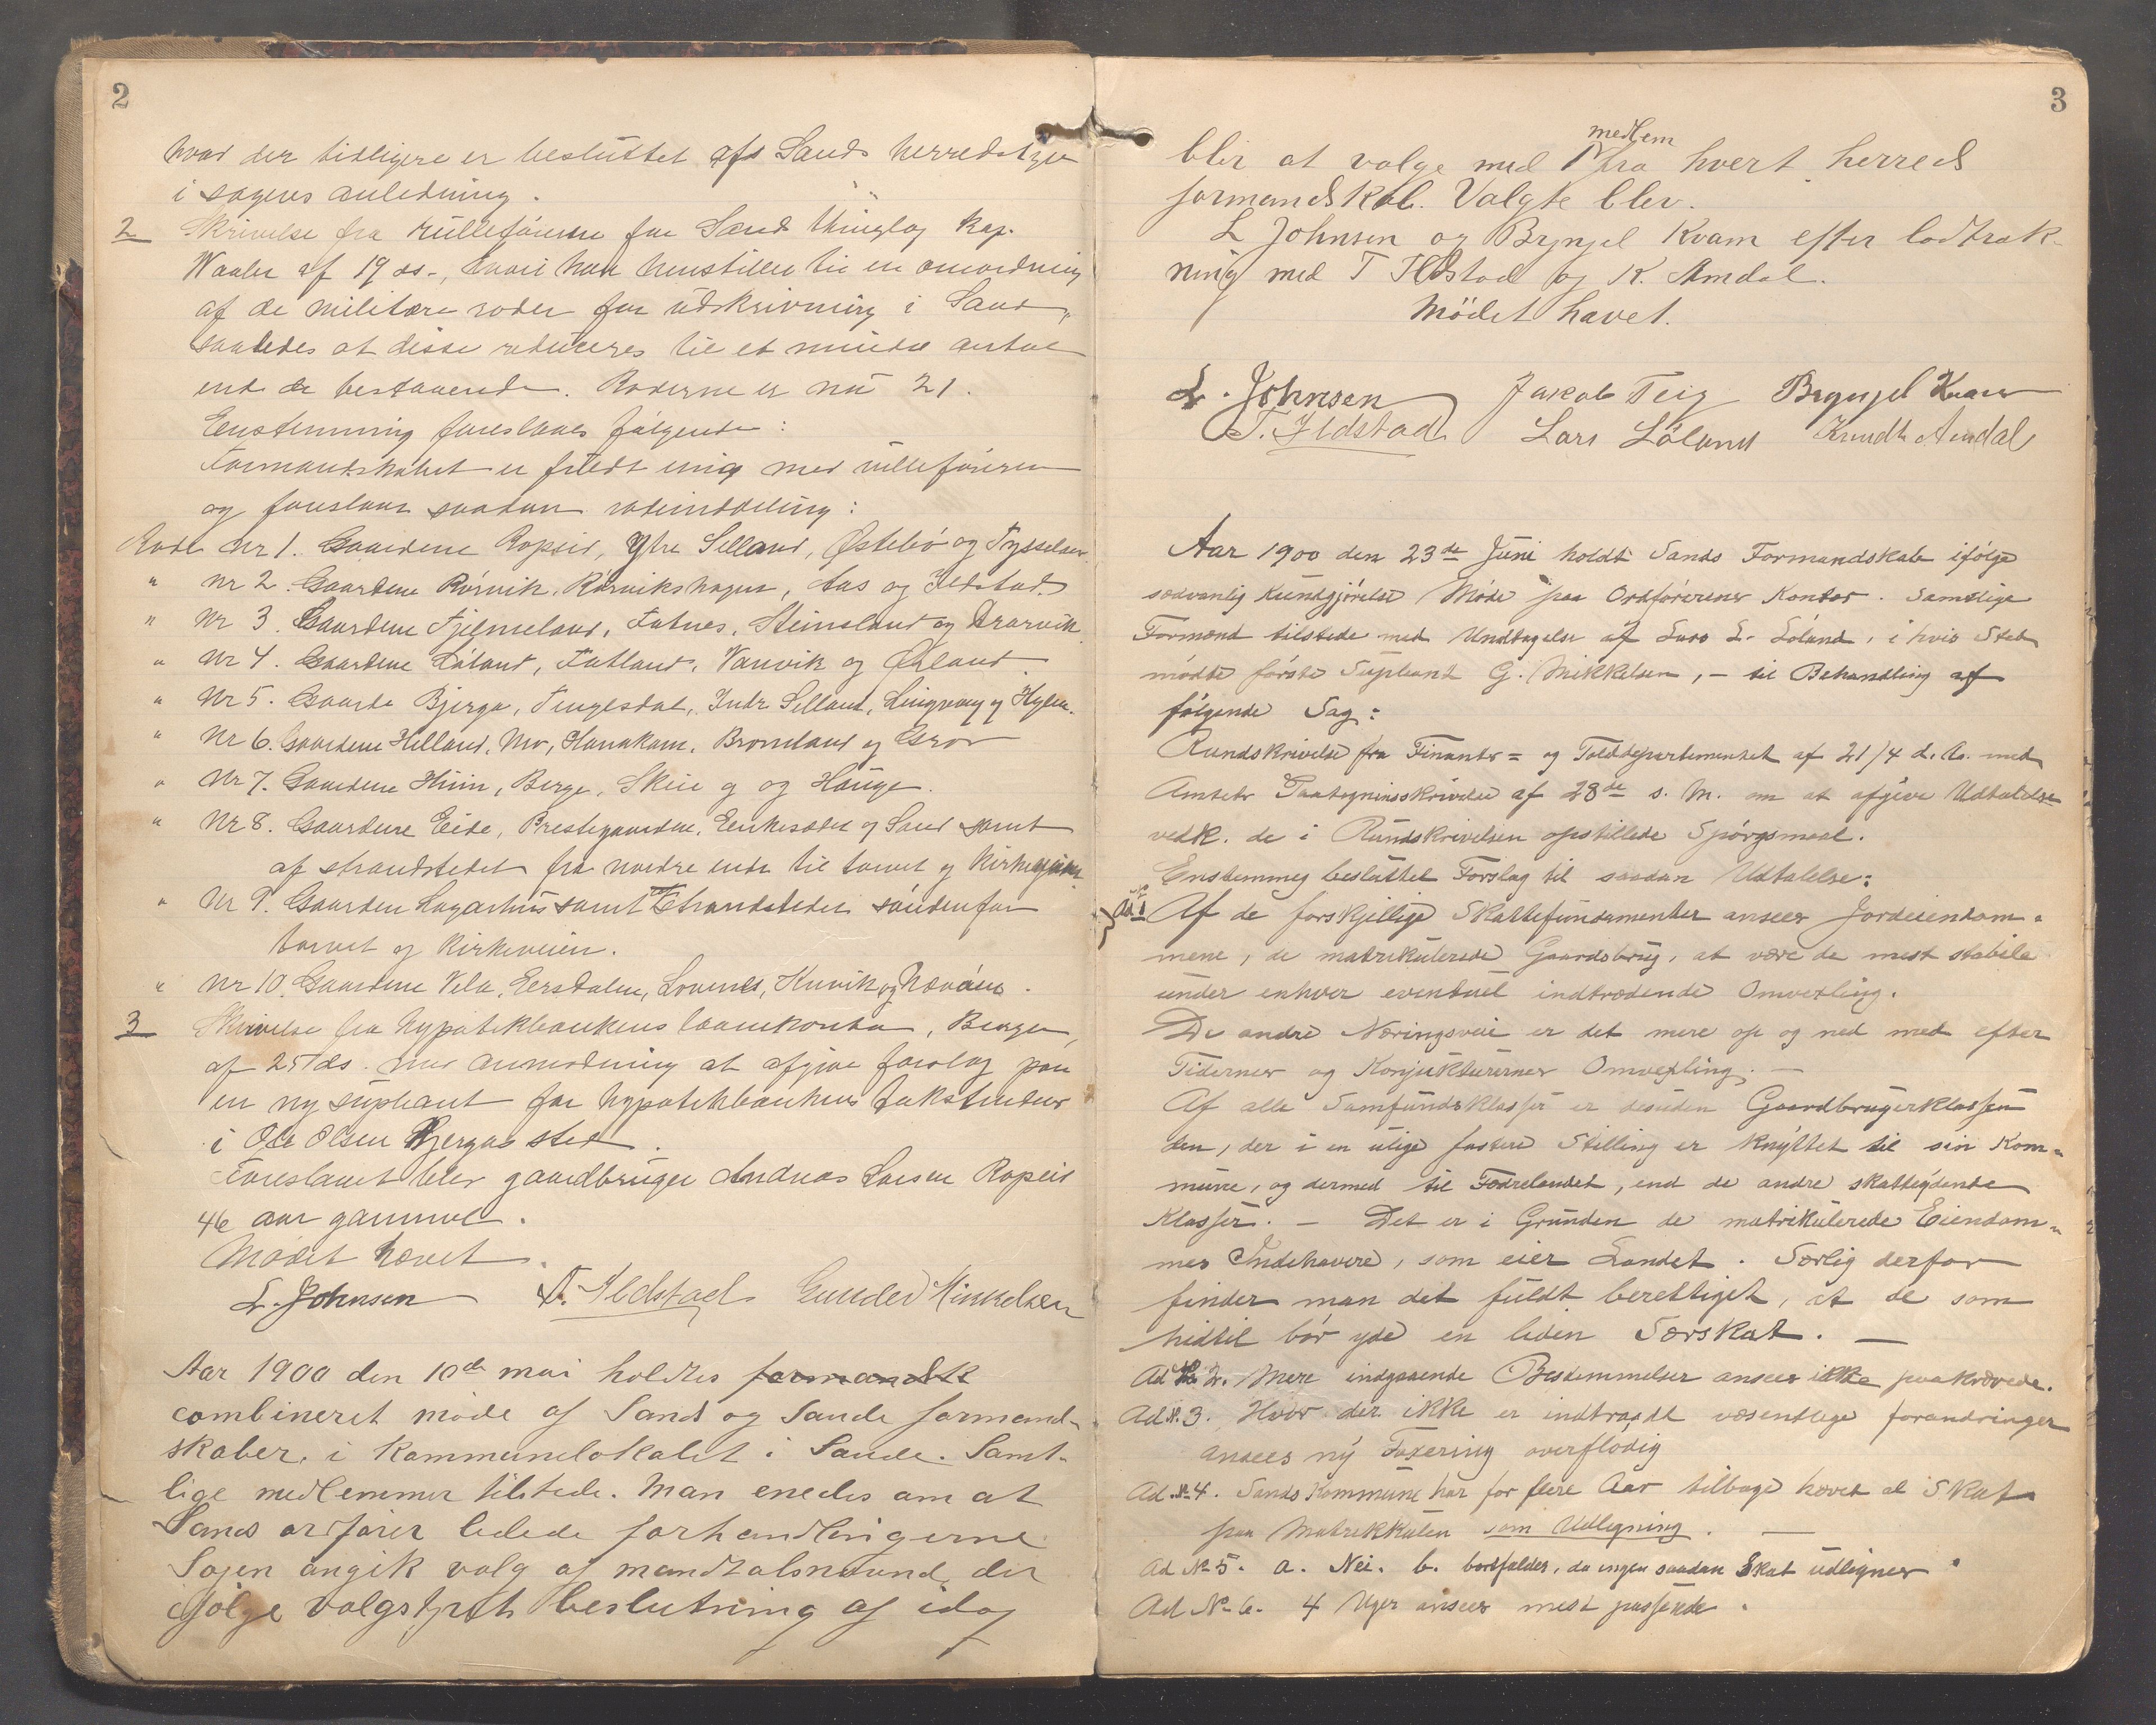 2
hvad der tidligere er besluttet af Sands herredstyre
i sagens anledning.
2 Skrivelse fra rulleføreren for Sand thinglag kap.
Waaler af 19 ds., hvori han henstiller til en omordning
af de militære roder for udskrivning i Sand,
saaledes at disse reduceres til et mindre antal
end de bestaaende. Roderne er nu 21.
Enstemmig foreslaaes følgende:
Formandskabet er fuldt enig med rulleføreren
og foreslaar saadan rodeinddeling:
Rode Nr 1. Gaardene Ropeid, Ytre Selland, Østebø og Tysselsen
" Nr 2. Gaardene Rørvik, Rørvikshagen, Aas og Ildstad.
" Nr 3. Gaardene Fjelmeland, Fatnes, Steinsland og Drarvik.
" Nr 4. Gaardene Løland, Fatland, Vanvik og Øxland.
" Nr 5. Gaarde Bjerga, Tengesdal, Indr Selland, Lingvang og Hylen.
" Nr 6. Gaardene Helland, Mo, Hanakam, Bromland og Grov
" Nr 7. Gaardene Hiim, Berge, Skeie g og Hauge.
" Nr 8. Gaardene Eide, Prestegaarden, Enkesædet og Sand samt
af strandstedet fra nordre ende til torvet og Kirkeveien.
" Nr 9. Gaarden Lagarhus samt Strandstedet søndenfor
torvet og Kirkeveien.
" Nr 10. Gaardene Vela, Eersdalen, Lovnes, Kuvik og Nævøen.
3 Skrivelse fra hypotekbankens laanekontor, Bergen,
af 25/ ds. med anmodning at afgive forslag paa
en ny supleant for hypotekbankens takstmænd
i Ole Olsen Bjergas sted.
Foreslaaet blev gaardbruger Andreas Larsen Ropeid
46 aar gammel.
Mødet hævet.
L. Johnsen T. Ildstad Gunder Mikkelsen
Aar 1900 den 10de mai holdtes formandsk
combineret møde af Sand og Saude formand-
skaber, i kommunelokalet i Saude. Samt-
lige medlemmer tilstede. Man enedes om at
Sands ordfører ledede forhandlingerne
Sagen angik valg af mandtalsmænd, der
ifølge valgstyrets beslutning af idag
3
blir at vælge med 1 medlem fra hvert herreds
formandskab. Valgte blev.
L Johnsen og Brynjel Kvam efter lodtræk-
ning med T Ildstad og K. Amdal.
Mødet hævet.
L. Johnsen Jakob Teig Brynjel Kvam
T. Ildstad Lars Løland Knudt Amdal
Aar 1900 den 23de Juni holdt Sands Formandskab ifølge
sædvanlig Kundgjørelse Møde paa Ordførerens Kontor. Samtlige
Formænd tilstede med Undtagelse af Lars L. Løland, i hvis Sted
mødte første Supleant G. Mikkelsen, – til Behandling af
følgende Sag:
Rundskrivelse fra Finants= og Tolddepartementet af 21/4 d. A. med
Amtets Paategningsskrivelse af 28de s. M. om at afgive Udtalelse
vedk. de i Rundskrivelsen opstillede Spørgsmaal.
Enstemmig besluttet Forslag til saadan Udtalelse:
Ad No 1 Af de forskjellige Skattefundamenter ansees Jordeiendom-
mene, de matrikulerede Gaardsbrug, at være de mest stabile
under enhver eventuel indtrædende Omvexling.
De andre Næringsveie er det mere op og ned med efter
Tidernes og Konjukturernes Omvexling. —
Af alle Samfundsklasser er desuden Gaardbrugerklassen
den, der i en ulige fastere Stilling er knyttet til sin Kom-
mune, og dermed til Fædrelandet, end de andre skatteydende
Klasser. – Det er i Grunden de matrikulerede Eiendom-
mes Indehavere, som eier Landet. Særlig derfor
finder man det fuldt berettiget, at de som
hidtil bør yde en liden Særskat. —
Ad No 2. Mere indgaaende Bestemmelser ansees ikke paakrævede.
Ad N. 3. Hvor der ikke er indtraadt væsentlige forandringer
ansees ny Taxering overflødig
Ad. N. 4. Sands Kommune har for flere Aar tilbage hævet al Skat
paa Matrikkulen som Udligning. —
Ad N. 5. a. Nei. b. bortfalder, da ingen saadan Skat udlignes.
Ad N. 6. 4 Uger ansees mest passende.